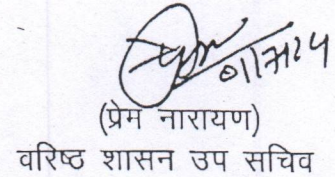 (प्रेम नारायण)
वरिष्ठ शासन उप सचिव